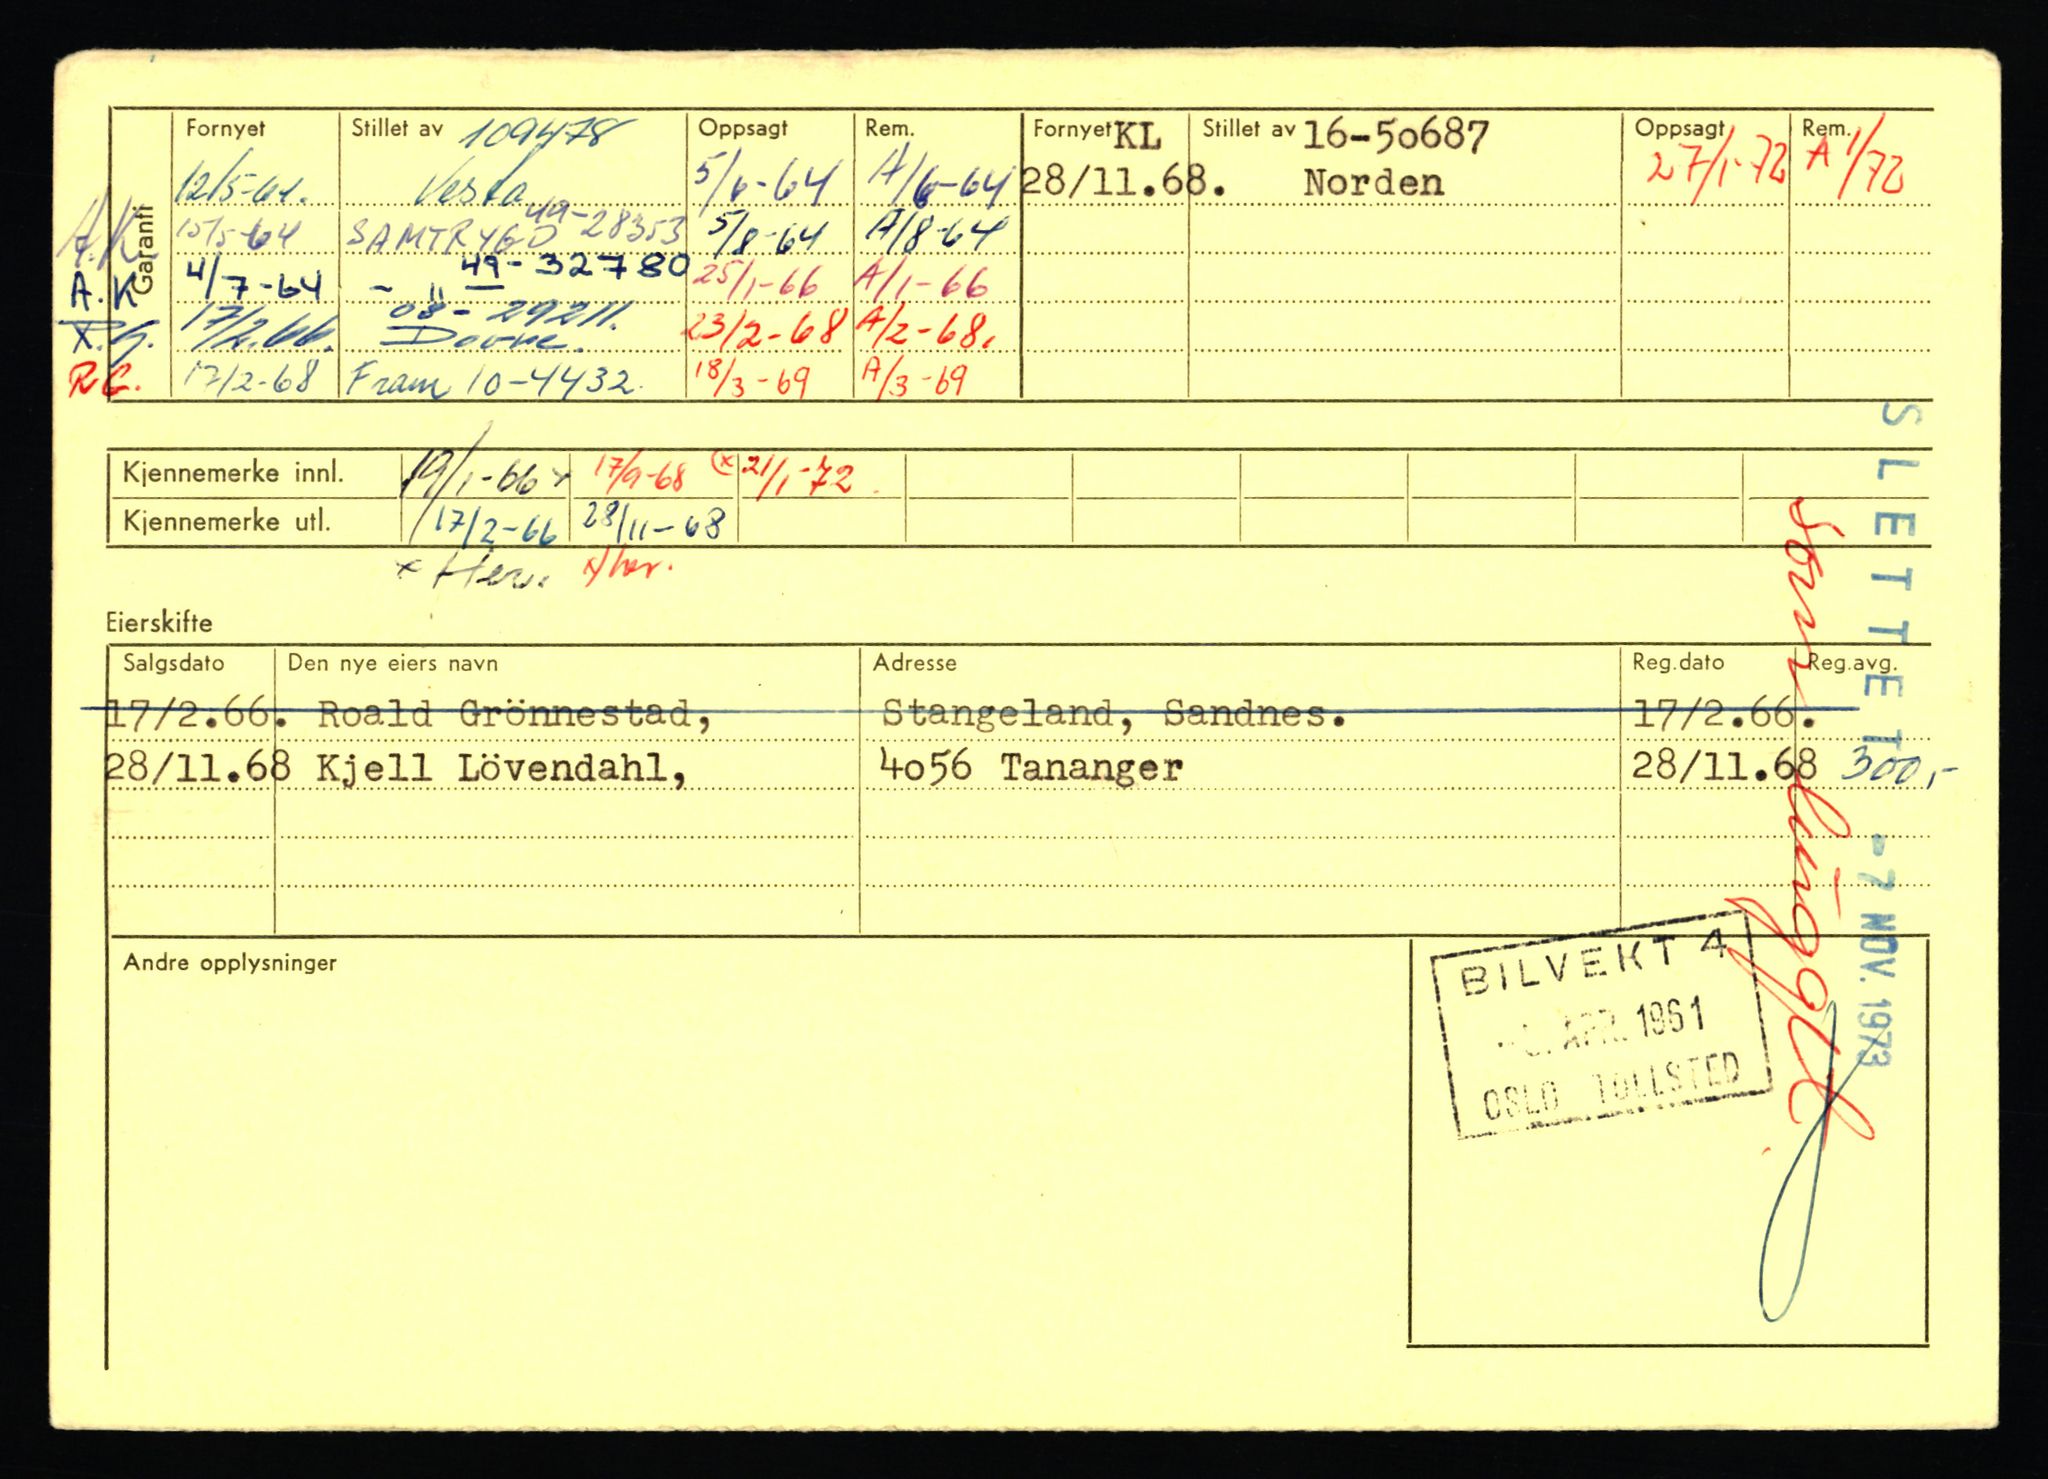 Garanti
Fornyet Stillet av 109478 Oppsagt Rem. Fornyet KL Stillet av 16-50687 Oppsagt Rem.
12/5-64. Vesta 5/6-64 A/6-64 28/11.68. Norden 27/1-72 A 1/72
A.K. 15/5-64 SAMTRYGD 49-28353 5/8-64 A/8-64
A.K 4/7-64 - " - 49-32780 25/1-66 A/1-66
17/2.66. 08-29211. Dovre. 23/2-68 A/2-68.
17/2-68 Fram 10-4432. 18/3-69 A/3-69
Kjennemerke innl. 19/1-66 x 17/9-68 (x 21/1-72
Kjennemerke utl. 17/2-66 28/11-68
x Her. x/her.
Eierskifte
Salgsdato Den nye eiers navn Adresse Reg.dato Reg.avg.
17/2.66. Roald Grönnestad, Stangeland, Sandnes. 17/2.66.
28/11.68 Kjell Lövendahl, 4o56 Tananger 28/11.68 300,-
Andre opplysninger
BILVEKT 4
APR. 1961
OSLO TOLLSTED
SLETTET - 7 NOV. 1973